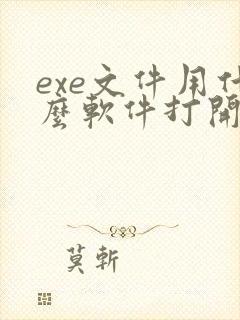 exe文件用什
麼軟件打開
莫斬